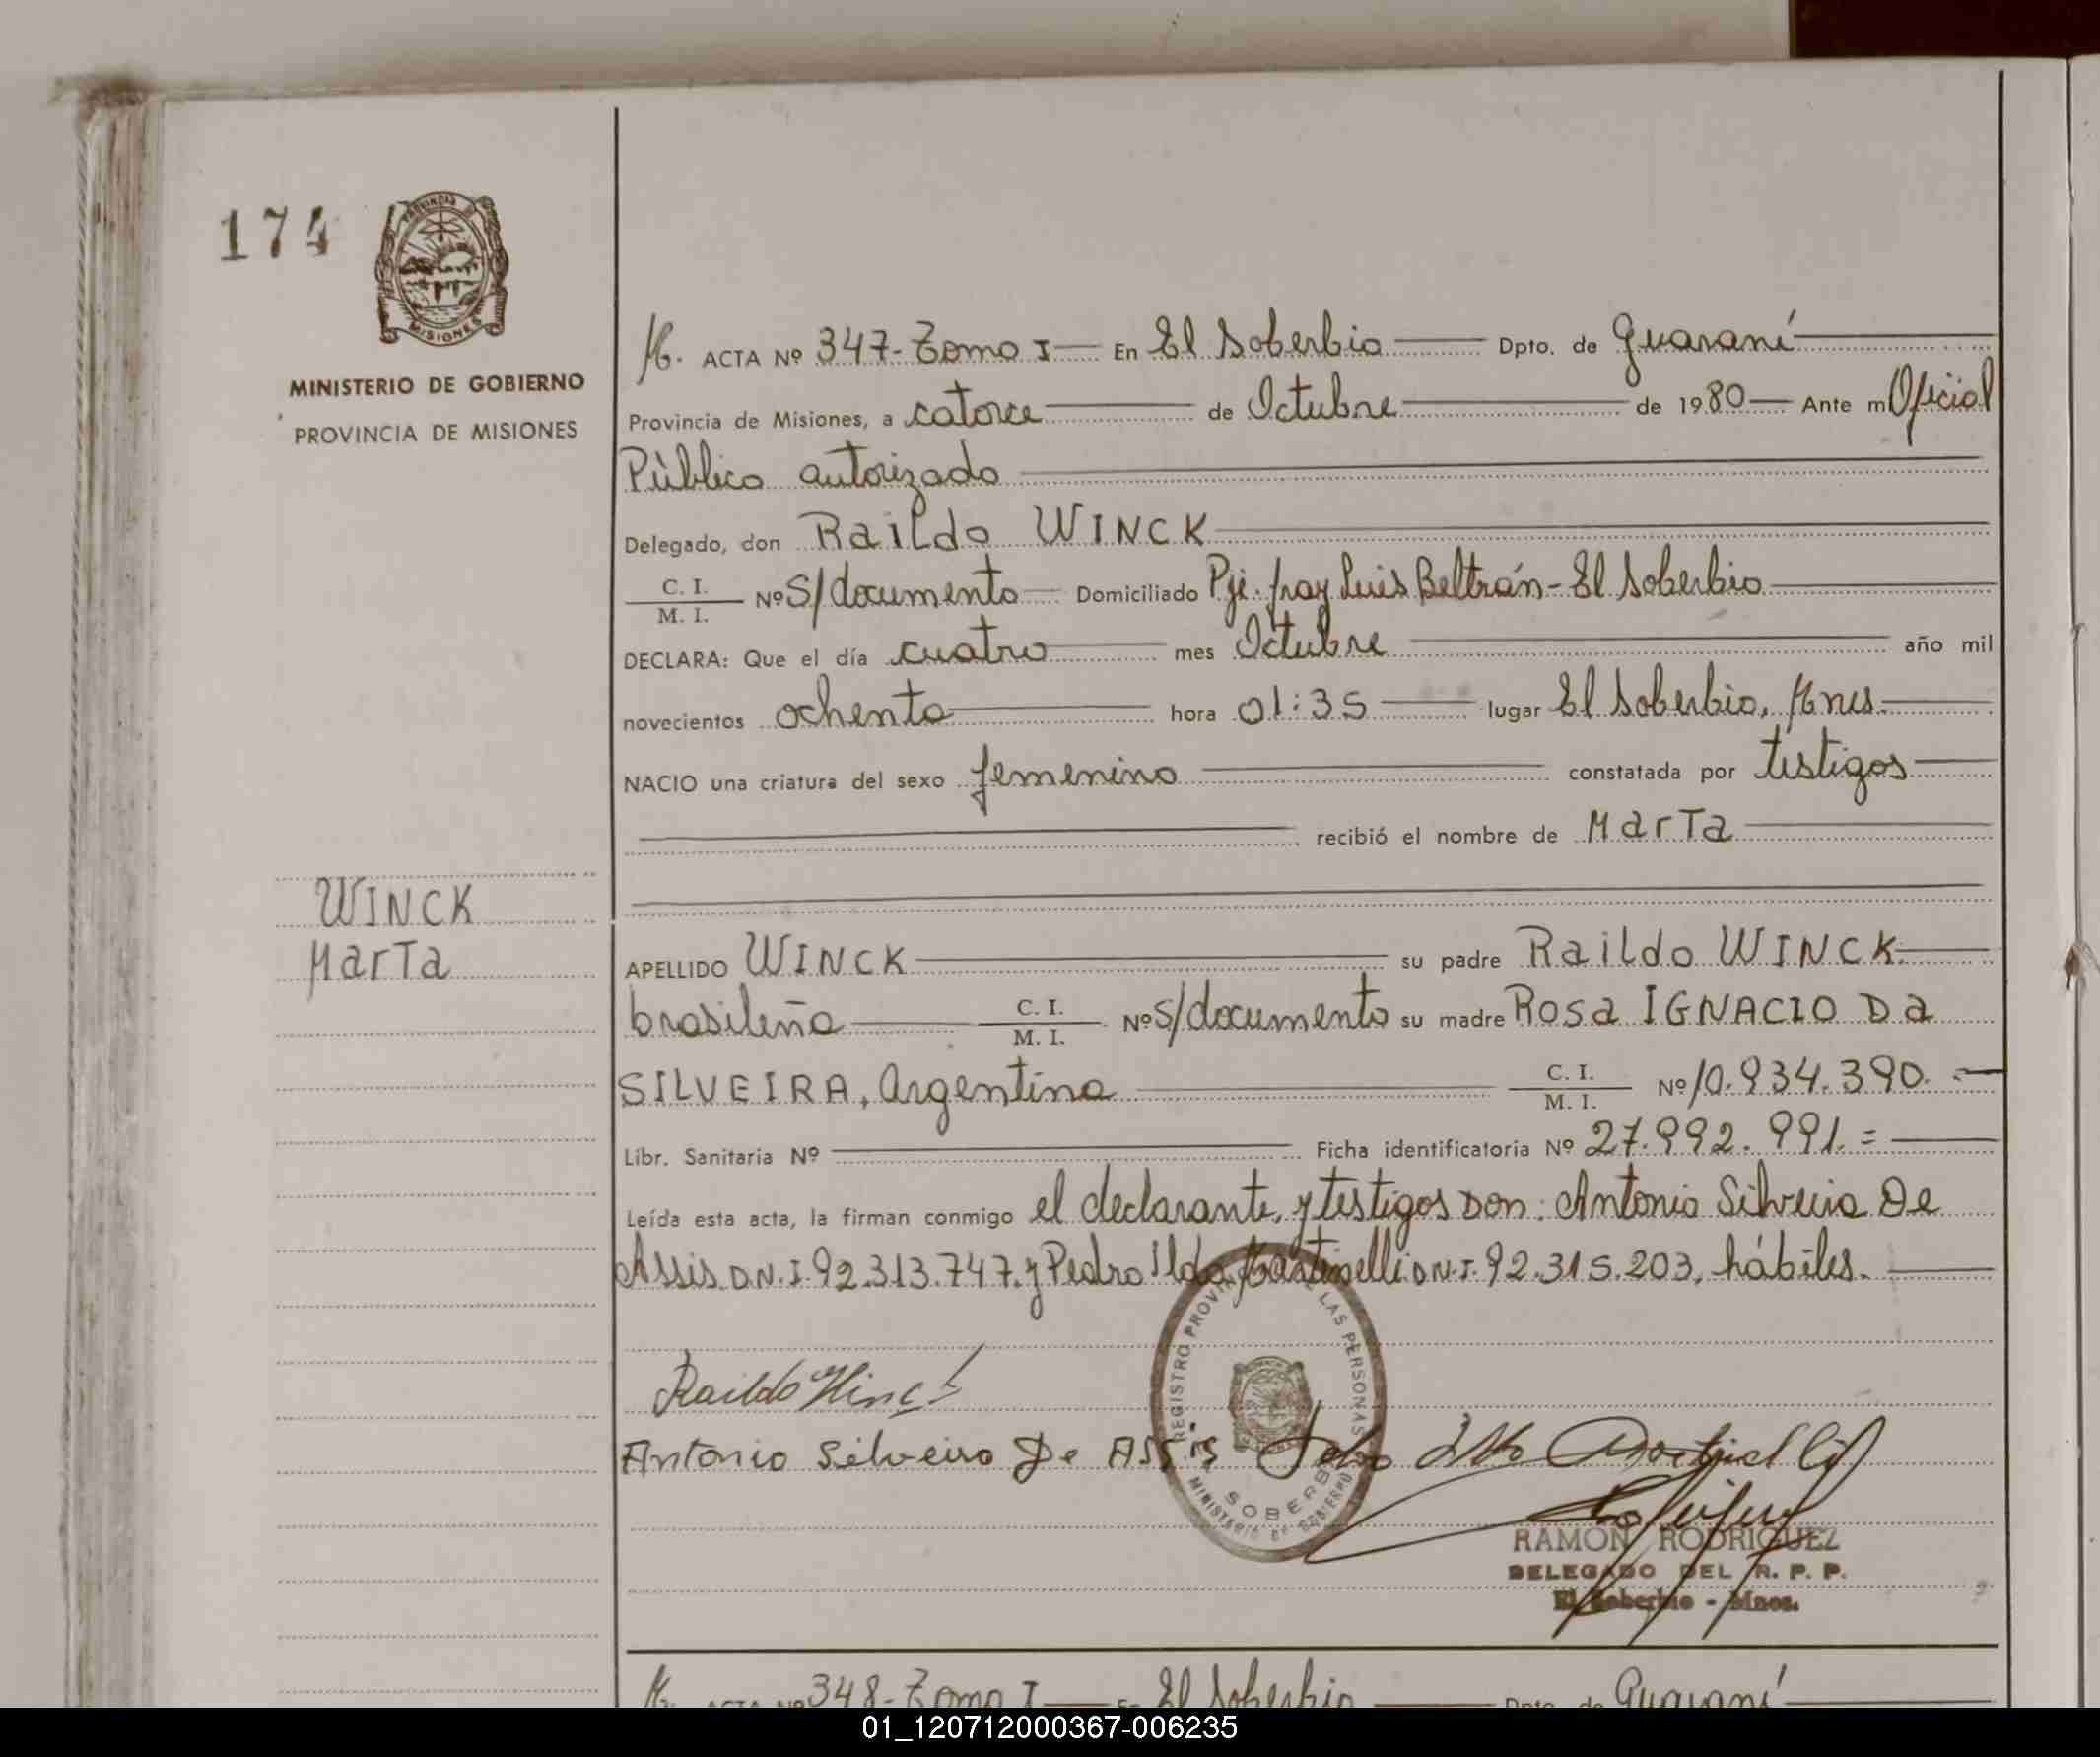 174
PROVINCIA DE
MISIONES
MINISTERIO DE GOBIERNO
PROVINCIA DE MISIONES
WINCK
Marta
M. ACTA Nº 347-Tomo I En El Soberbio Dpto. de Guaraní
Provincia de Misiones, a catorce de Octubre de 1980 Ante m Oficial
Pùblico autorizado
Delegado, don Raildo WINCK
C. I.
M. I. Nº S/documento Domiciliado Pje. fray Luis Beltrán-El Soberbio
DECLARA: Que el día cuatro mes Octubre año mil
novecientos ochenta hora 01:35 lugar El Soberbio, Mnes.
NACIO una criatura del sexo femenino constatada por testigos
recibió el nombre de Marta
APELLIDO WINCK su padre Raildo WINCK
brasileño C. I.
M. I. Nº S/documento su madre Rosa IGNACIO Da
SILVEIRA, Argentina C. I.
M. I. Nº 10.934.390.=
Libr. Sanitaria Nº Ficha identificatoria Nº 27.992.991.=
Leída esta acta, la firman conmigo el declarante, y testigos Don: Antonio Silveira De
Assis D.N.I. 92.313.747. y Pedro Ildo Martinelli D.N.I. 92.315.203, hábiles.
REGISTRO LAS PERSONAS
SOBERB
MINISTERIO DE GOBIERNO
Raildo Winck
Antonio Silveiro De Assis
RAMON RODRIGUEZ
DELEGADO DEL R. P. P.
El Soberbio - Mnes.
M. ACTA Nº 348-Tomo I En El Soberbio Dpto. de Guaraní
01_120712000367-006235